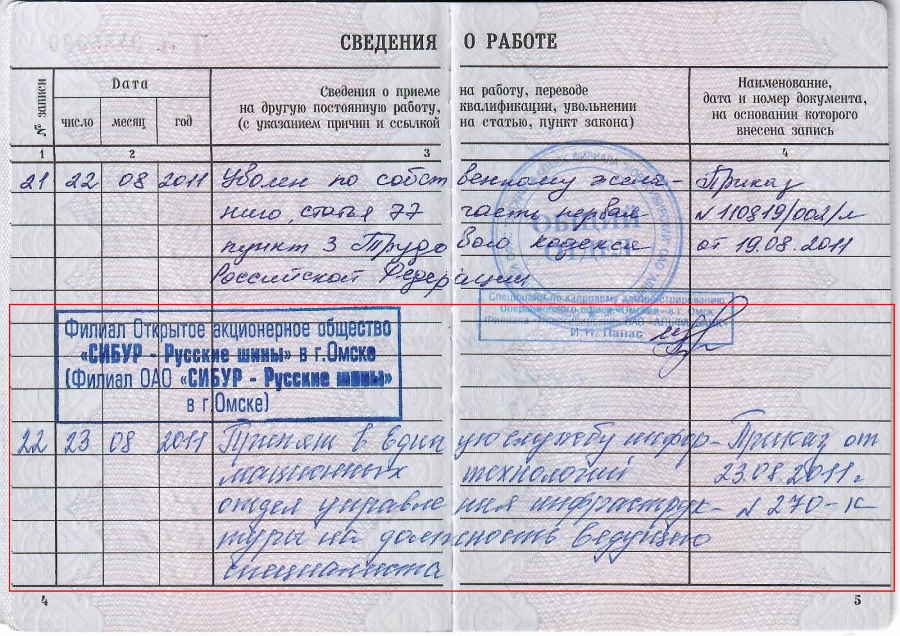 СВЕДЕНИЯ О РАБОТЕ
№ записи
Дата
число месяц год
Сведения о приеме на работу, переводе
на другую постоянную работу, квалификации, увольнении
(с указанием причин и ссылкой на статью, пункт закона)
Наименование,
дата и номер документа,
на основании которого
внесена запись
1 2 3 4
21 22 08 2011 Уволен по собственному жела- Приказ
нию, статья 77 часть первая N 110819/002/л
пункт 3 Трудового кодекса от 19.08.2011
Российской Федерации
ОБЩИЙ
ОТДЕЛ
Специалист по кадровому администрированию
И.П. Панас
Филиал Открытое акционерное общество
«СИБУР - Русские шины» в г.Омске
(Филиал ОАО «СИБУР - Русские шины»
в г.Омске)
22 23 08 2011 Принят в Единую службу инфор- Приказ от
мационных технологий 23.08.2011г
отдел управления инфраструк- N 270-к
туры на должность ведущего
специалиста
4 5